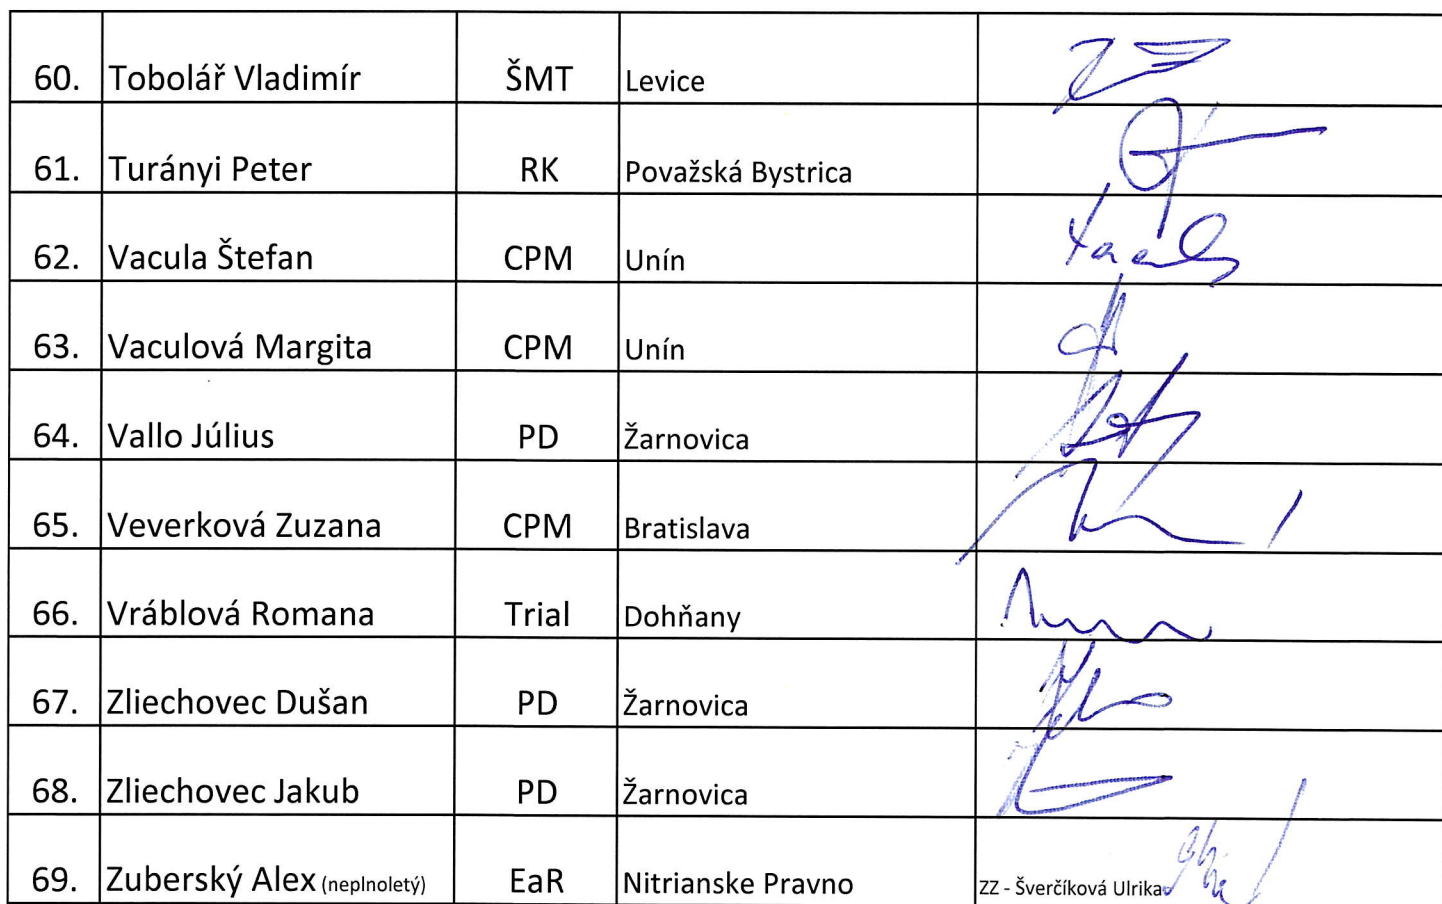 60. Tobolář Vladimír ŠMT Levice
61. Turányi Peter RK Považská Bystrica
62. Vacula Štefan CPM Unín
63. Vaculová Margita CPM Unín
64. Vallo Július PD Žarnovica
65. Veverková Zuzana CPM Bratislava
66. Vráblová Romana Trial Dohňany
67. Zliechovec Dušan PD Žarnovica
68. Zliechovec Jakub PD Žarnovica
69. Zuberský Alex (neplnoletý) EaR Nitrianske Pravno ZZ - Šverčíková Ulrika